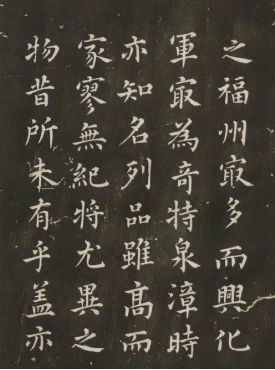 之福州㝡多而興化
軍㝡為竒特泉漳時
亦知名列品雖髙而
家寥無紀将尤異之
物昔所未有乎盖亦